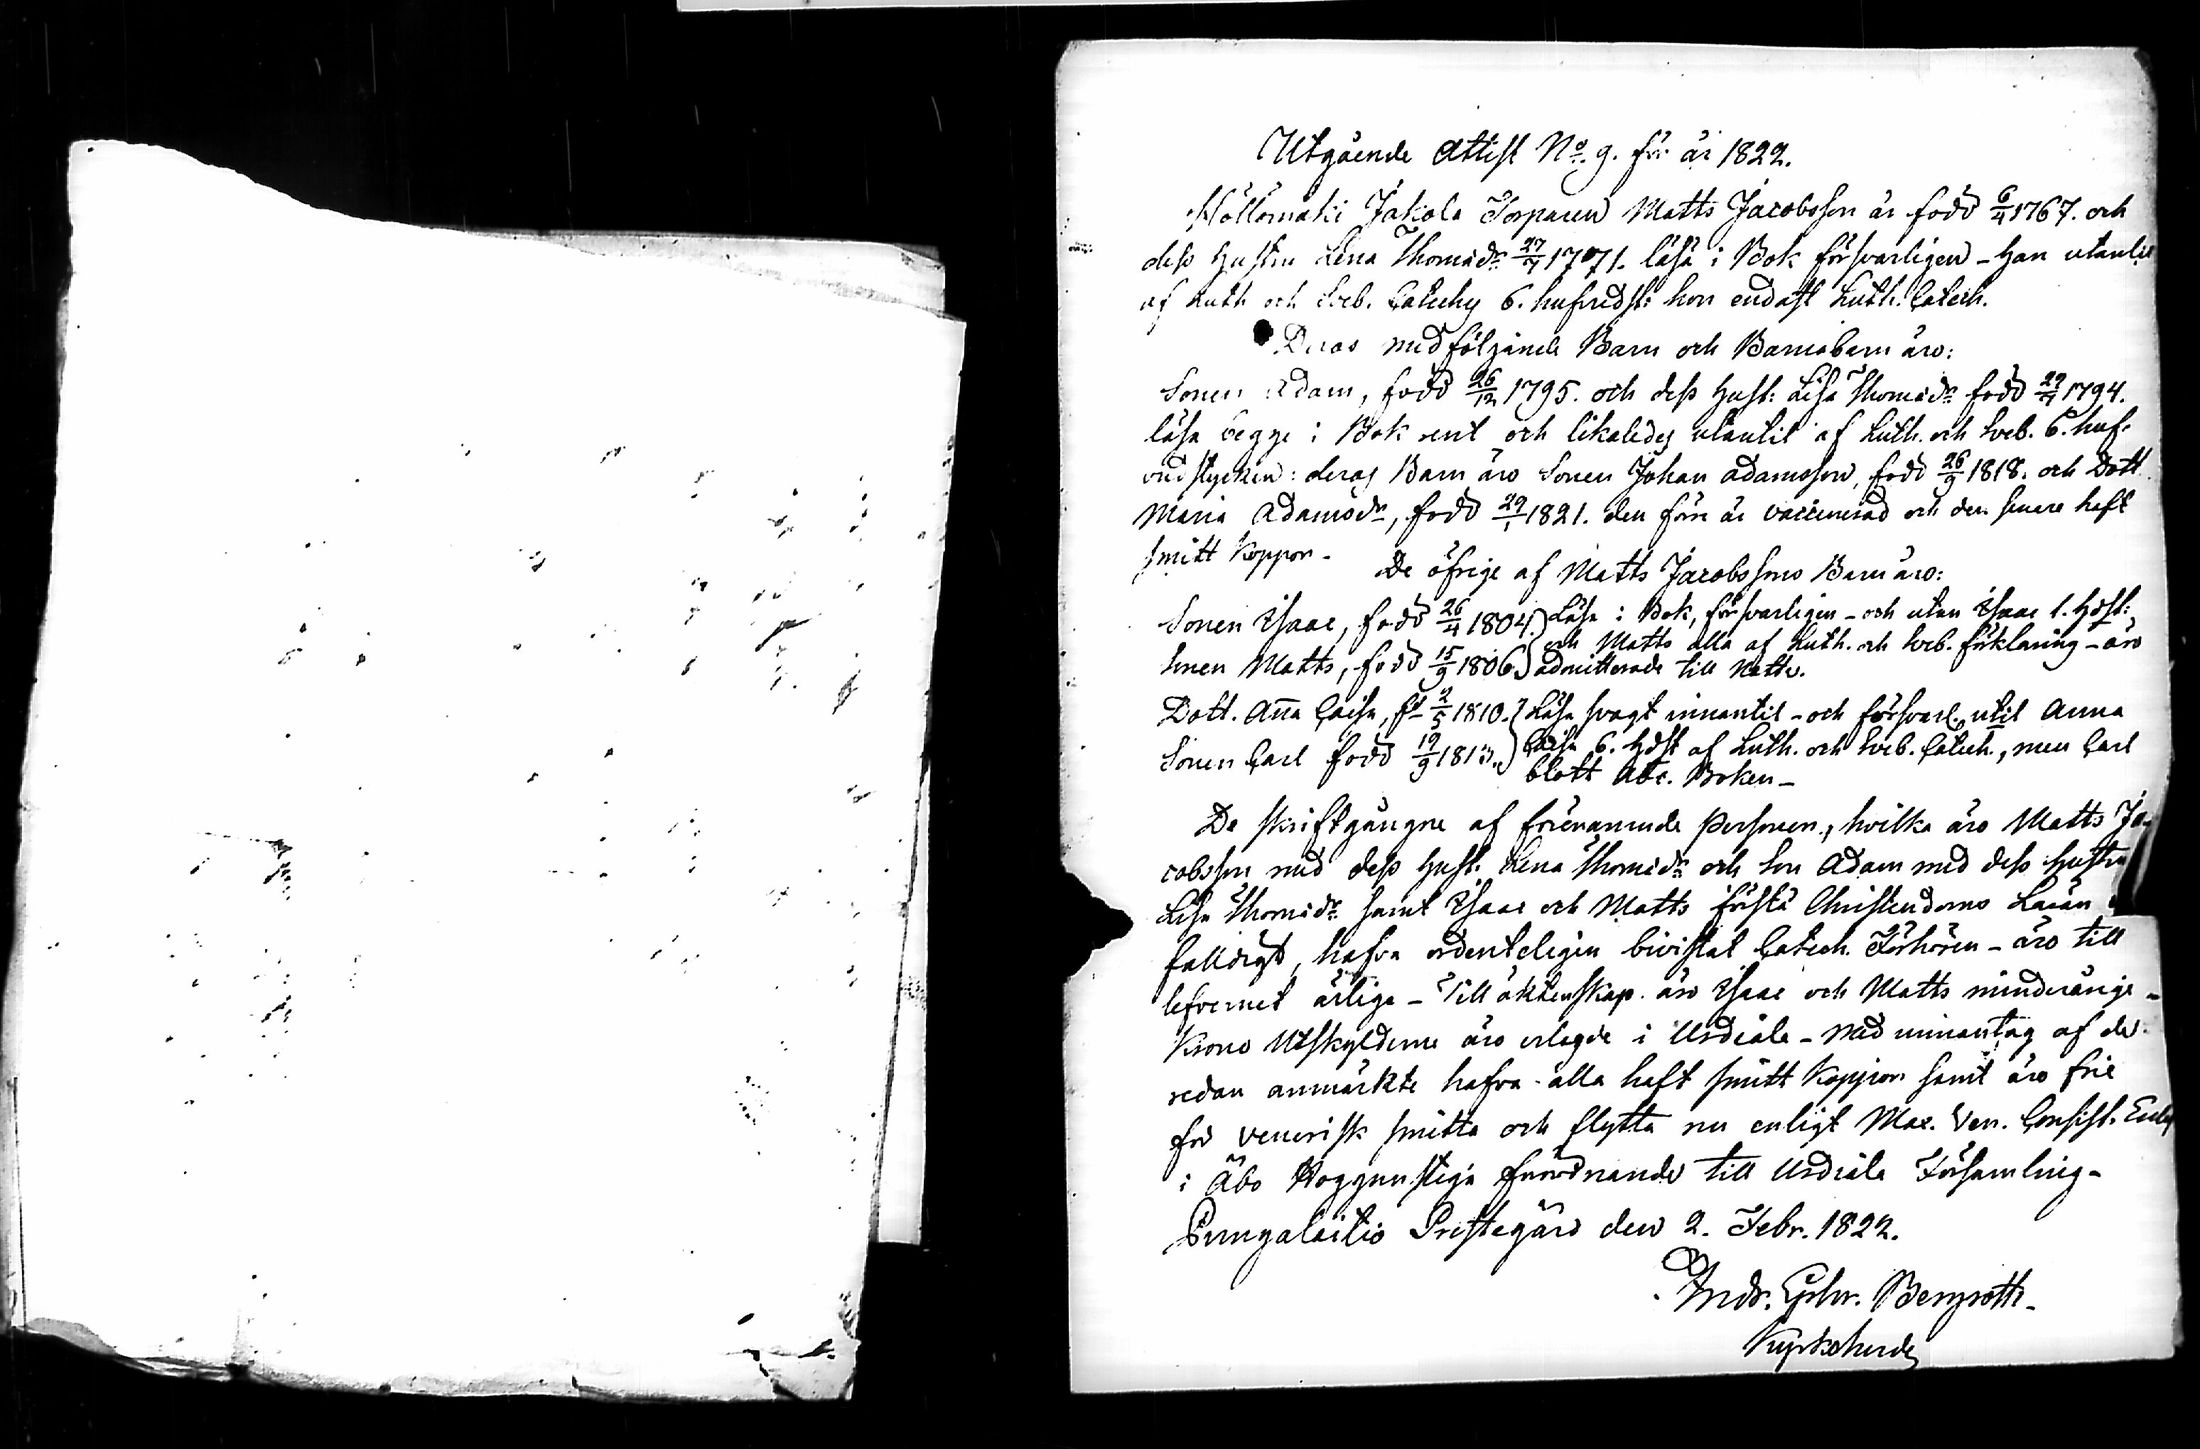 Utgående Attest No. 9. för år 1822.
Möllömäki Jakola Torparen Matts Jacobsson är född 6/4 1767. och
dess Hustru Lena Thomædr 27/7 1771. läsa i Bok försvarligen - han utantil
af Luth. och Sveb. Catechs 6. hufvudst: hon endast Luth. Catech.
Deras medföljande Barn och Barnabarn äro:
Sonen Adam, född 26/12 1795. och dess Hust: Lisa Thomædr född 29/4 1794.
läsa begge i Bok rent och likaledes utantil af Luth. och Sveb. 6. huf-
vudstycken: deras Barn äro Sonen Johan Adamsson, född 26/9 1818. och Dott.
Maria Adamsdr, född 29/1 1821. den förr är vaccinerad och den senare haft
smitt Koppor - De öfrige af Matts Jacobssons Barn äro:
Sonen Isaac, född 26/4 1804. Läsa i Bok, försvarligen - och utan Isaac 1. Hdst:
och Matts alla af Luth. och Sveb. förklaring - äro
Sonen Matts, född 15/9 1806. admitterade till Nattv.
Dott. Anna Caisa, fd 2/5 1810. Läsa svagt innantil - och försvarl. util Anna
Sonen Carl född 19/9 1813. Caisa 6. Hdst af Luth. och Sveb. Catech., men Carl
blott Abc. Boken -
De skriftgångne af förenämnde Personer, hvilka äro Matts Ja-
cobsson med dess Hust. Lena Thomædr och Son Adam med dess Hustru
Lisa Thomædr samt Isaac och Matts förstå Christendoms Läran
falldigt, hafva ordenteligen bivistat Catech. Förhören - äro till
lefvernet ärliga - Till äktenskap äro Isaac och Matts minderårige -
Krono Utskylderne äro erlagde i Urdiala - Med undantag af de
redan anmärkte hafva alla haft smitt Koppor samt äro frie
för venerisk smitta och flytta nu enligt Max. Ven. Consist. Eccles
i Åbo Höggunstiga förordnande till Urdiala Församling -
Pungalaitio Prestegård den 2. Febr. 1822.
Andr. Gshr. Bergroth -
Kyrkoherde